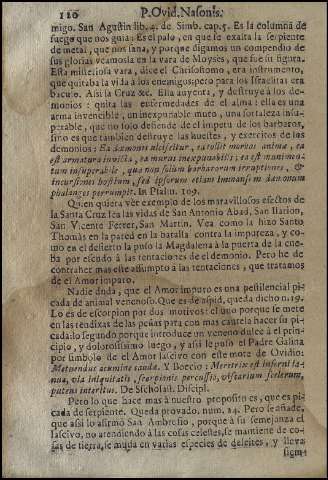 110 P. Ovid. Nasonis.
migo. San Agustin lib. 4. de Simb. cap. 5. Es la columna de
fuego que nos guia: Es el palo, en que se exalta la serpiente
de metal, que nos sana, y porque digamos un compendio de
sus glorias veamosla en la vara de Moyses, que fue su figura.
Esta misteriosa vara, dice el Chrisostomo, era instrumento,
que quitaba la vida à los enemigos: pero para los Israelitas era
baculo. Assi la Cruz &c. Ella auyenta, y destruye à los de-
monios: quita las enfermedades de el alma: ella es una
arma invencible, un inexpunable muro, una fortaleza insu-
perable, que no solo defiende de el impetu de los barbaros,
sino es que tambien destruye las huestes, y exercitos de los
demonios: Ea dæmonis ulciscitur, ea tollit morbos animæ, ea
est armatura invicta, ea murus inexpunabilis; ea est munimen-
tum insuperabile, qua non solum barbarorum irruptiones, &
incursiones hostium, sed ipsorum etiam immanium dæmonum
phalanges perrumpit. In Psalm. 109.
Quien quiera vèr exemplo de los maravillosos efectos de
la Santa Cruz lea las vidas de San Antonio Abad, San Ilarion,
San Vicente Ferrer, San Martin. Vea como la hizo Santo
Thomàs en la pared en la batalla contra la impureza, y co-
mo en el desierto la puso la Magdalena à la puerta de la cue-
ba por escudo à las tentaciones de el demonio. Pero he de
contraher mas este assumpto à las tentaciones, que tratamos
de el Amor impuro.
Nadie duda, que el Amor impuro es una pestilencial pi-
cada de animal venenoso. Que es de aspid, queda dicho n. 19.
Lo es de escorpion por dos motivos: el uno porque se mete
en las rendixas de las peñas para con mas cautela hacer su pi-
cada: lo segundo porque introduce un veneno dulce à el prin-
cipio, y dolorosissimo luego, y assi le puso el Padre Galina
por simbolo de el Amor lascivo con este mote de Ovidio:
Metuendus acumine cauda. Y Boecio: Meretrix est inferni ia-
nua, via iniquitatis, scorpionis percussio, viscarium scelerum,
puteus interitus. De Scholast. Discipl.
Pero lo que hace mas à nuestro proposito es, que es pi-
cada de serpiente. Queda provado, num. 24. Pero se añade,
que assi lo afirmò San Ambrosio, porque à su semejanza el
lascivo, no atendiendo à las cosas celestes, se mantiene de co-
sas de tierra, se muda en varias especies de deleites, y lleva
signi-